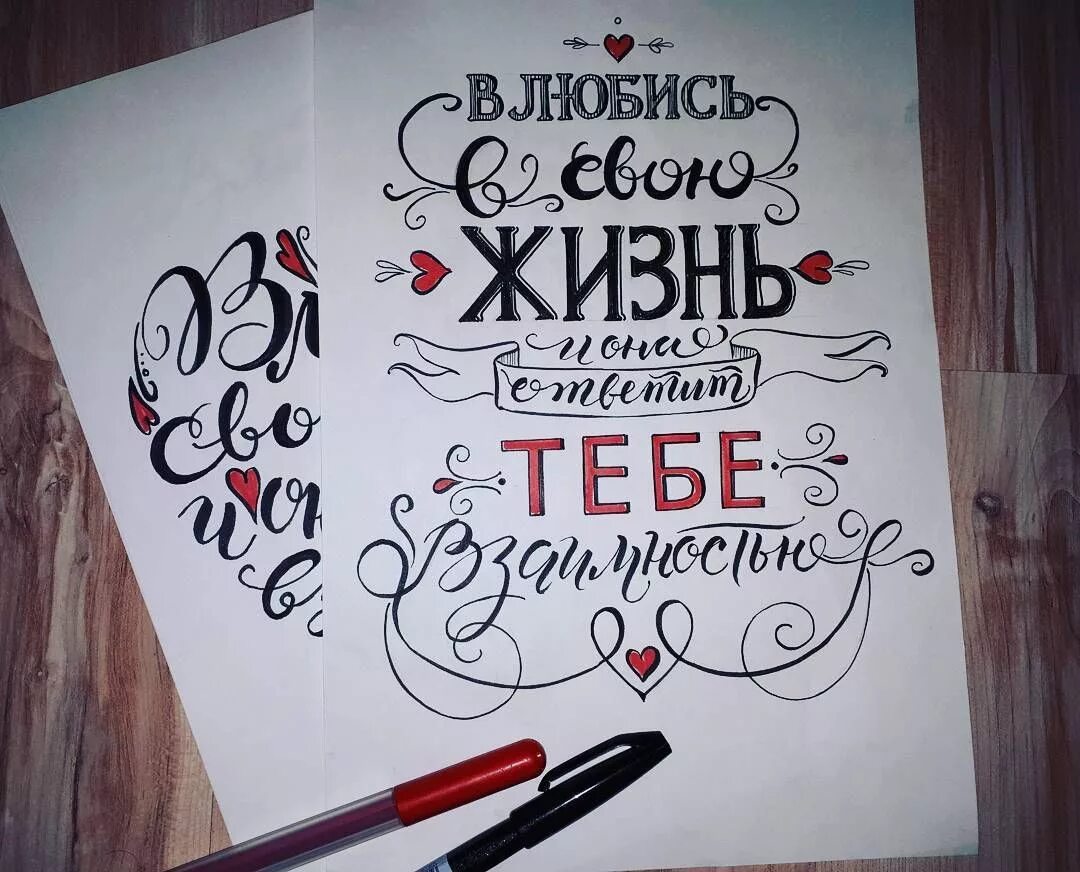 ВЛЮБИСЬ
в свою
ЖИЗНЬ
и она
ответит
ТЕБЕ
Взаимностью
Вл
сво
и он
вз